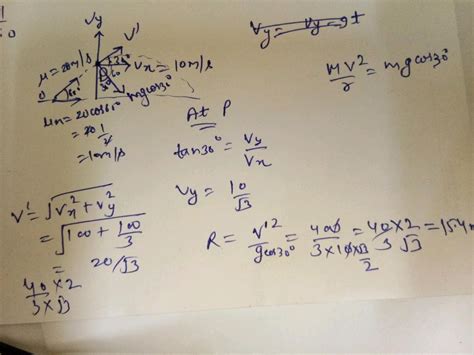 Vy
V'
u = 20m/s
Vx = 10m/s
30°
60°
mgcos30°
O
ux = 20cos60°
= 20 1/2
= 10m/s
Vy = Vy - gt
MV²/r = mgcos30°
At P
tan30° = Vy/Vx
Vy = 10/√3
V' = √Vx² + Vy²
= √100 + 100/3
= 20/√3
R = V'²/gcos30° = 400/3×10×√3/2 = 40×2/3√3 = 15.4m
40×2/3×√3